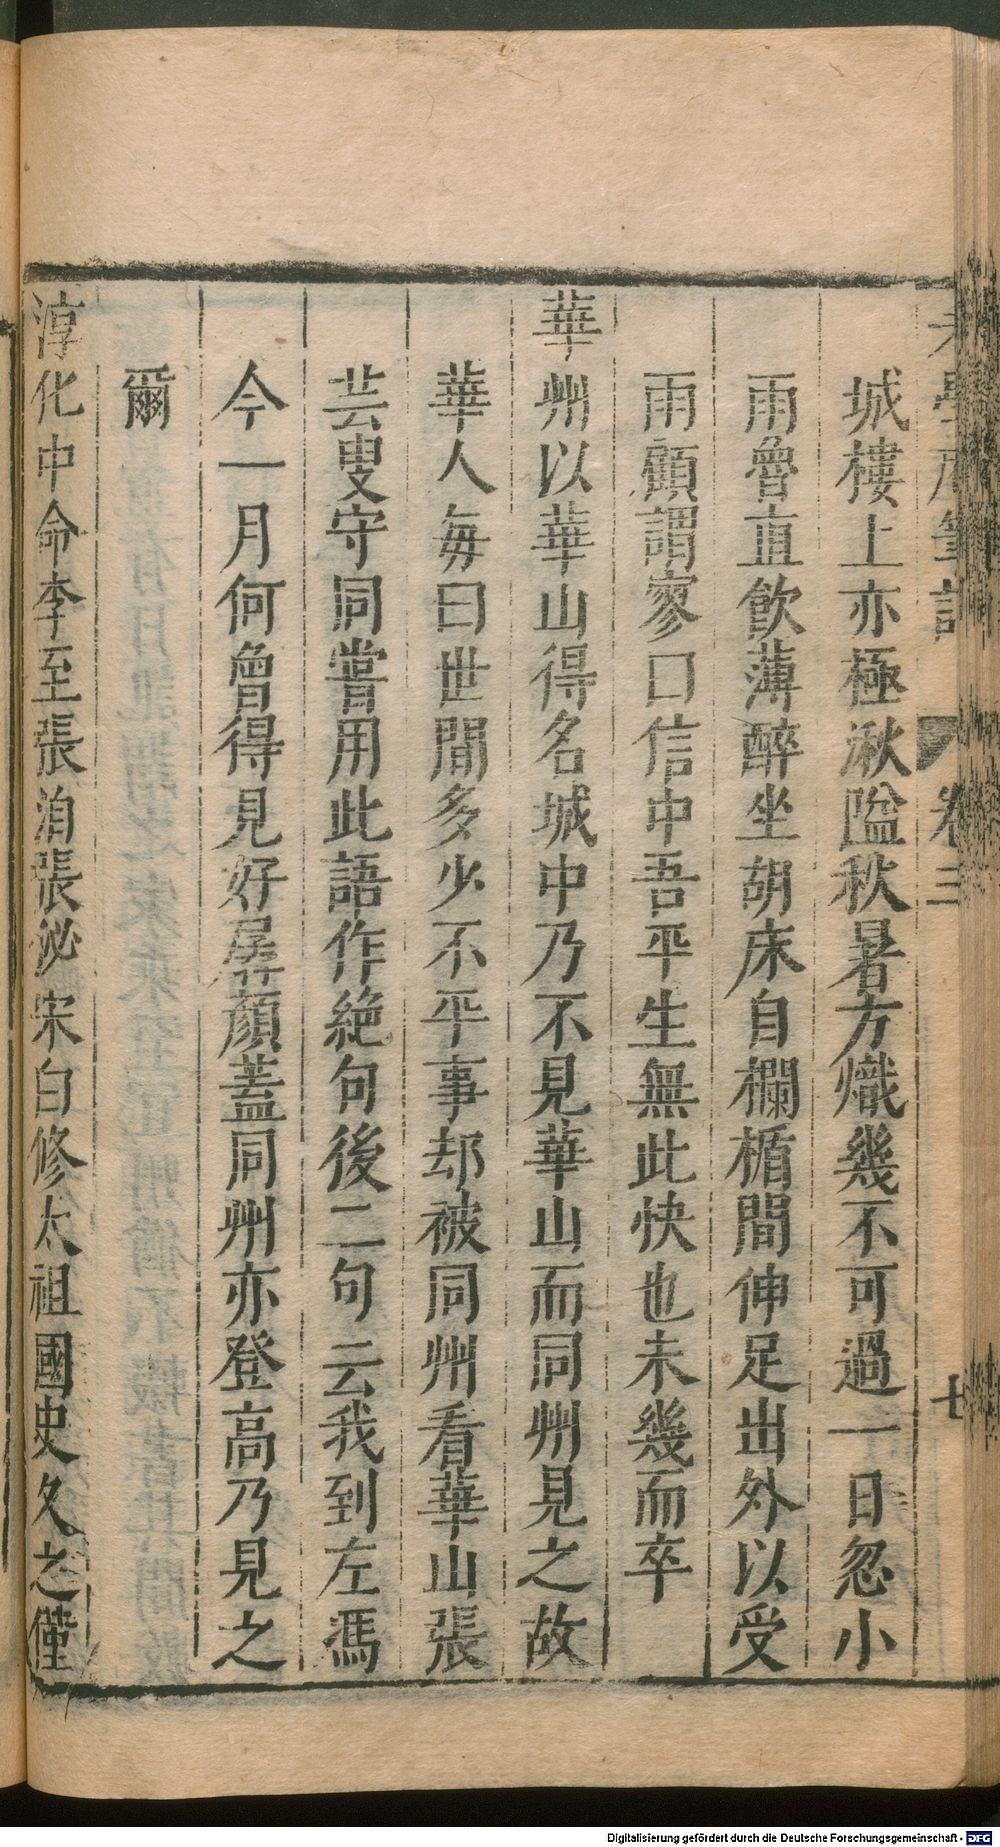 老學庵筆記 卷三 七
城樓上亦極湫隘秋暑方熾幾不可過一日忽小
雨魯直飲薄醉坐胡床自欄楯間伸足出外以受
雨顧謂寥曰信中吾平生無此快也未幾而卒
華州以華山得名城中乃不見華山而同州見之故
華人每曰世間多少不平事却被同州看華山張
芸叟守同嘗用此語作絶句後二句云我到左馮
今一月何曾得見好孱顔蓋同州亦登高乃見之
爾
淳化中命李至張洎張佖宋白修太祖國史久之僅
Digitalisierung gefördert durch die Deutsche Forschungsgemeinschaft - DFG